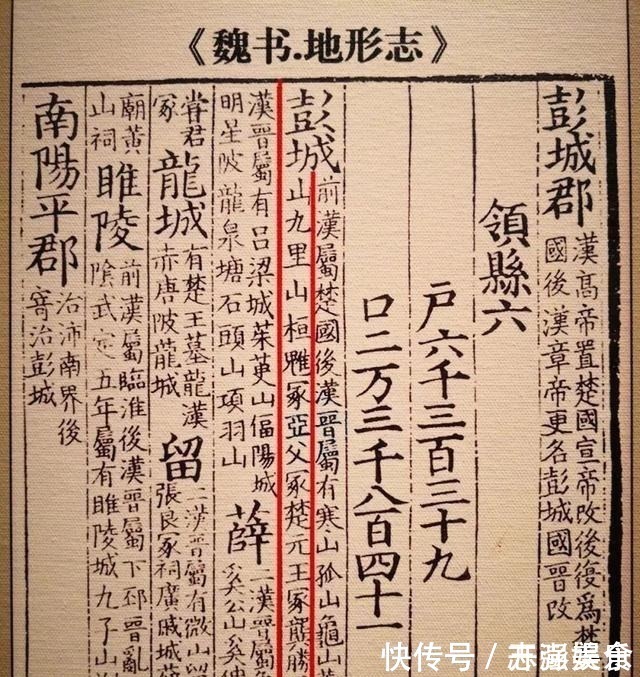 《魏书.地形志》
彭城郡 漢高帝置楚國宣帝改後復爲楚
國後漢章帝更名彭城國晉改
領縣六
户六千三百三十九
口二万三千八百四十一
彭城 前漢屬楚國後漢晉屬有寒山孤山龜山
山九里山桓魋冢亞父冢楚元王冢龔勝
漢晉屬有吕梁城茱萸山偪陽城
明星陂龍泉塘石頭山項羽山
薛 二漢晉屬
奚公山奚仲
甞君
冢
龍城 有楚王墓龍漢
赤唐陂龍城
留 二漢晉屬有微山留
張良冢祠廣戚城
廟黄
山祠
睢陵 前漢屬臨淮後漢晉屬下邳晉亂
陰武定五年屬有睢陵城九子山
南陽平郡 治沛南界後
寄治彭城
快传号 /